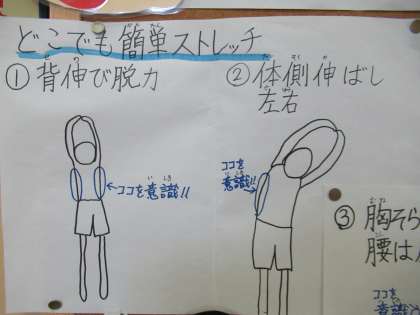 どこでも簡単ストレッチ
①背伸び脱力
←ココを意識!!
②体側伸ばし
左右
ココを
意識!!→
③胸そら
腰は
ココを
意識